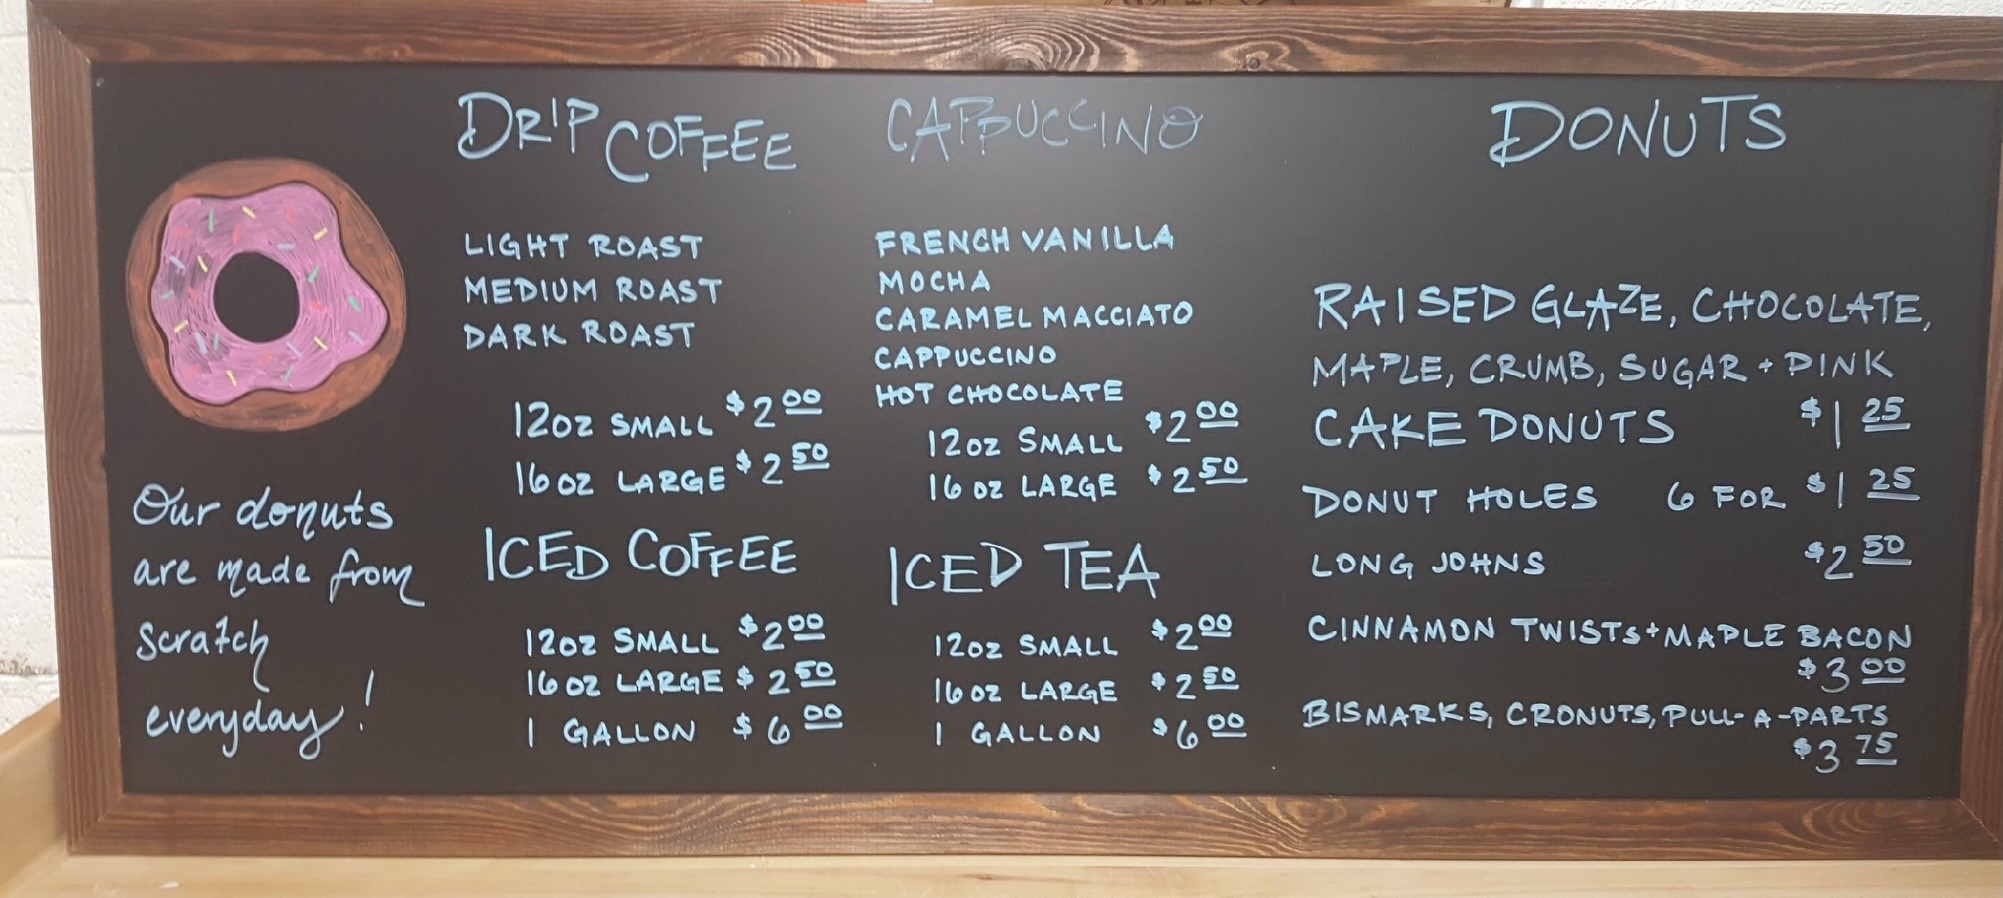 Our donuts
are made from
scratch
everyday!
DRIP COFFEE
LIGHT ROAST
MEDIUM ROAST
DARK ROAST
12oz SMALL $2 00
16oz LARGE $2 50
ICED COFFEE
12oz SMALL $2 00
16oz LARGE $2 50
1 GALLON $6 00
CAPPUCCINO
FRENCH VANILLA
MOCHA
CARAMEL MACCIATO
CAPPUCCINO
HOT CHOCOLATE
12oz SMALL $2 00
16oz LARGE $2 50
ICED TEA
12oz SMALL $2 00
16oz LARGE $2 50
1 GALLON $6 00
DONUTS
RAISED GLAZE, CHOCOLATE,
MAPLE, CRUMB, SUGAR + PINK
CAKE DONUTS $1 25
DONUT HOLES 6 FOR $1 25
LONG JOHNS $2 50
CINNAMON TWISTS + MAPLE BACON
$3 00
BISMARKS, CRONUTS, PULL-A-PARTS
$3 75